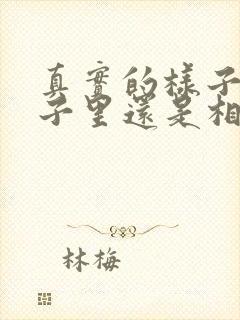 真實的樣子
子里還是相
林梅